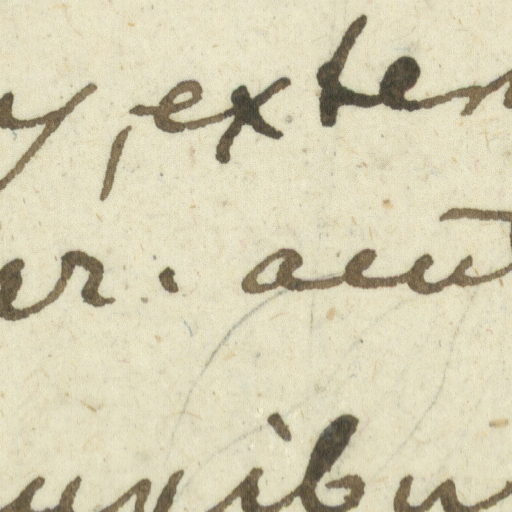 y, exten
er. acut
uribu